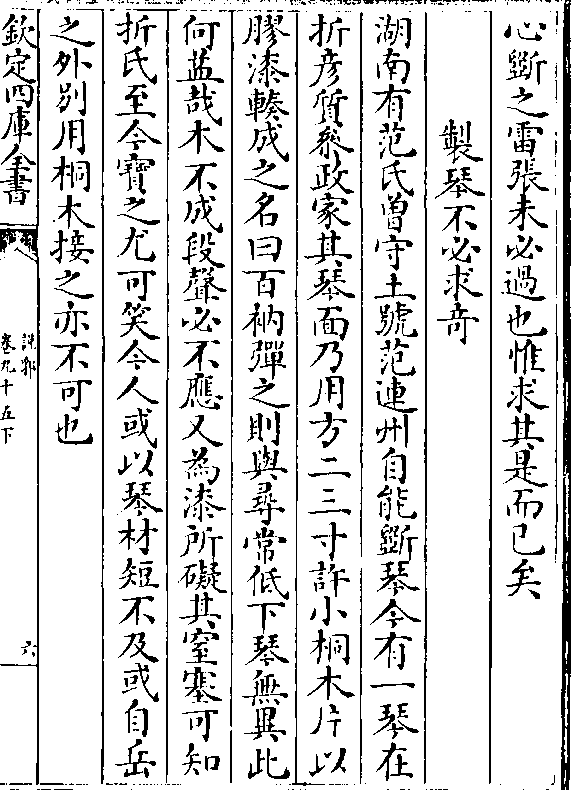 心斵之雷張未必過也惟求其是而已矣
製琴不必求竒
湖南有范氏曽守土號范連州自能斵琴今有一琴在
折彦質叅政家其琴面乃用方二三寸許小桐木片以
膠漆輳成之名曰百衲彈之則與尋常低下琴無異此
何益哉木不成段聲必不應又為漆所礙其窒塞可知
折氏至今寶之尤可笑今人或以琴材短不及或自岳
之外别用桐木接之亦不可也
欽定四庫全書
說郛
卷九十五下
六